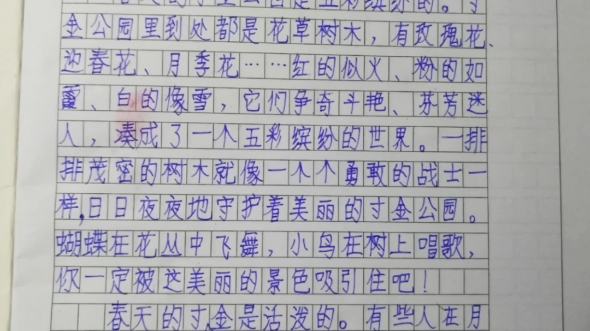 寸金公园是五彩缤纷的。寸
金公园里到处都是花草树木，有玫瑰花、
迎春花、月季花……红的似火、粉的如
霞、白的像雪，它们争奇斗艳、芬芳迷
人，凑成了一个五彩缤纷的世界。一排
排茂密的树木就像一个个勇敢的战士一
样，日日夜夜地守护着美丽的寸金公园。
蝴蝶在花丛中飞舞，小鸟在树上唱歌，
你一定被这美丽的景色吸引住吧！
春天的寸金是活泼的。有些人在月